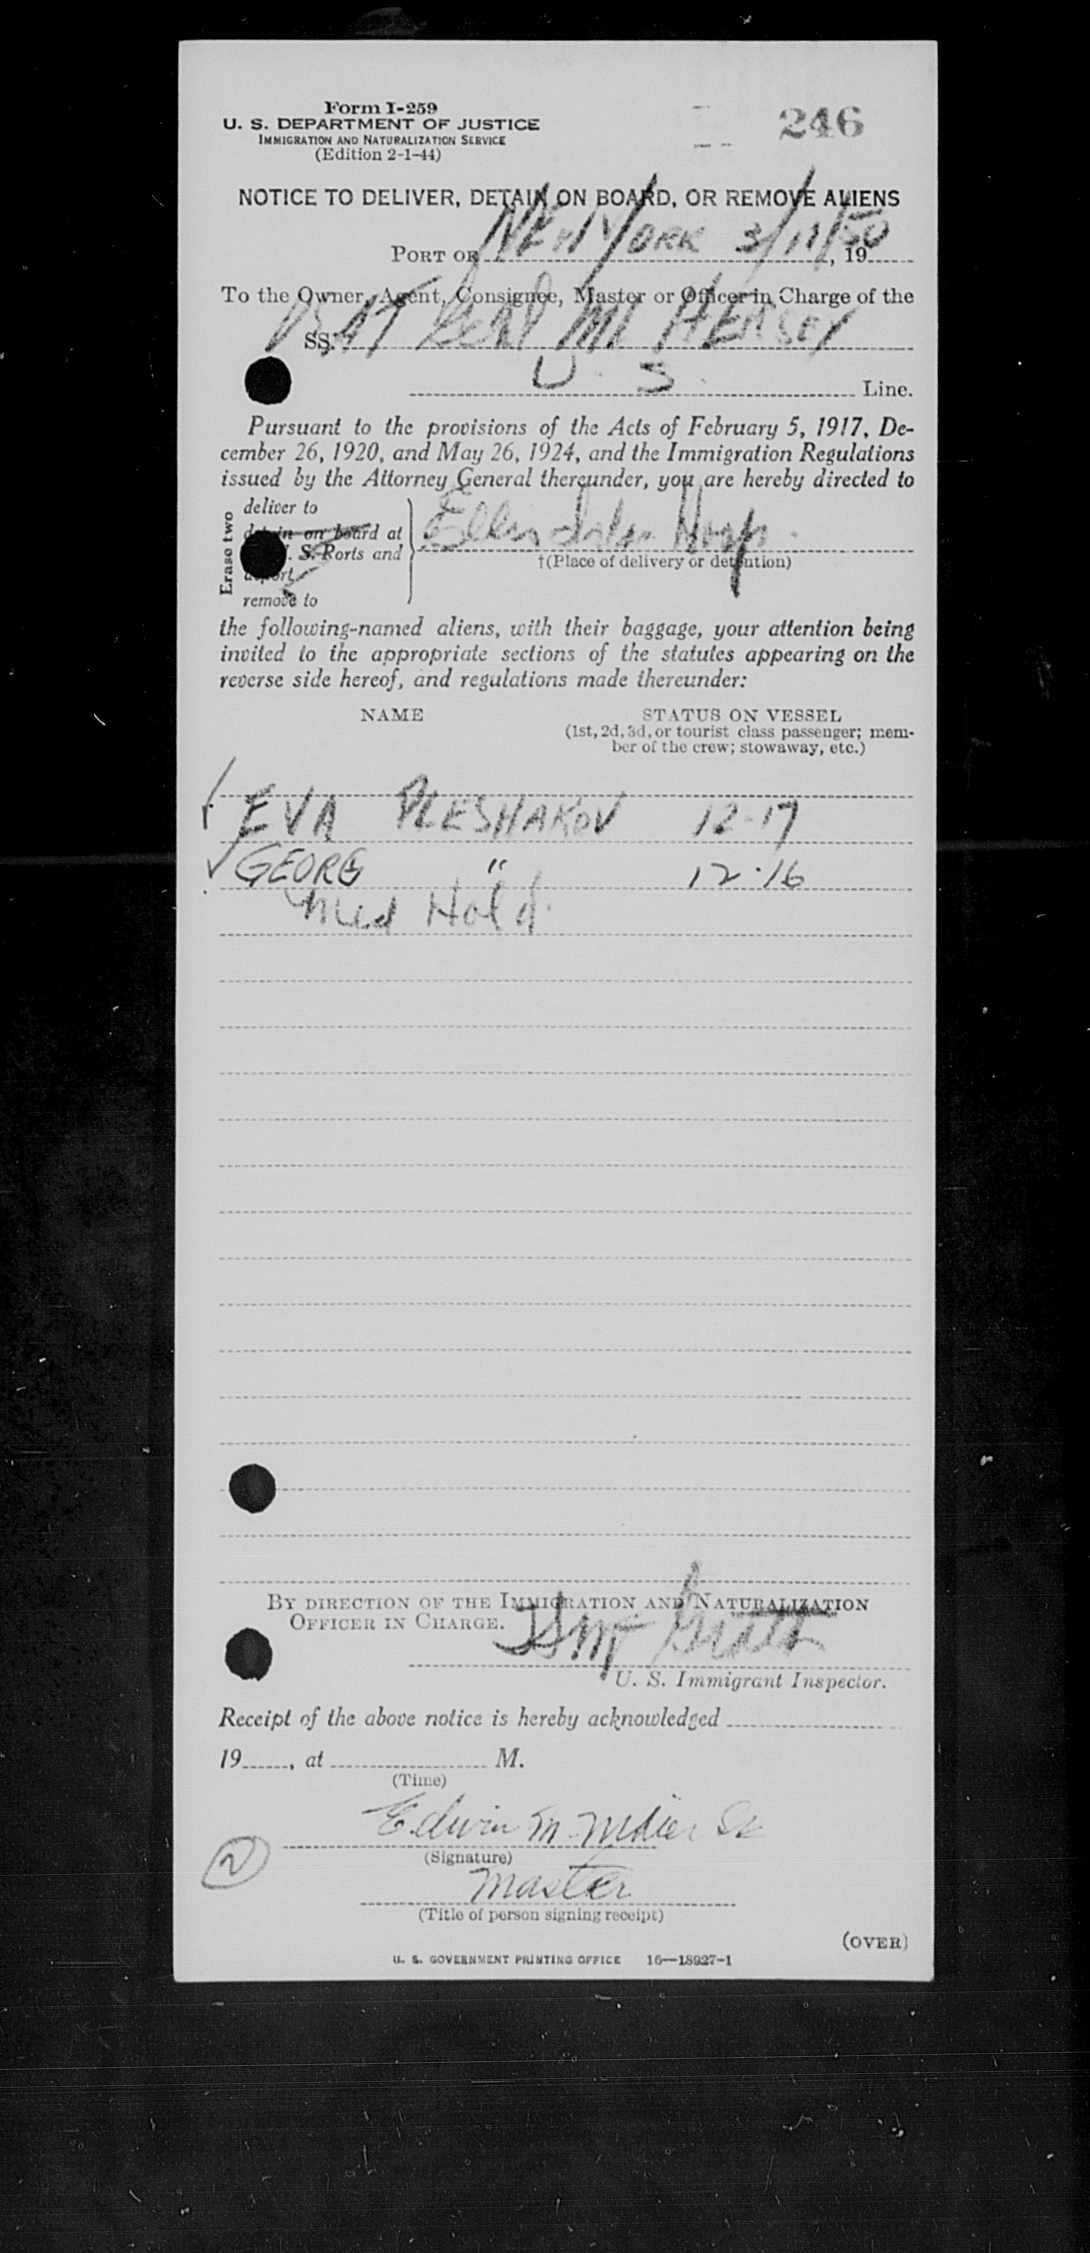 Form I-259
U. S. DEPARTMENT OF JUSTICE
IMMIGRATION AND NATURALIZATION SERVICE
(Edition 2-1-44)
246
NOTICE TO DELIVER, DETAIN ON BOARD, OR REMOVE ALIENS
PORT OF NEW YORK 3/11/50, 19
To the Owner, Agent, Consignee, Master or Officer in Charge of the
SS. USAT Genl M L HERSEY
U. S. Line.
Pursuant to the provisions of the Acts of February 5, 1917, De-
cember 26, 1920, and May 26, 1924, and the Immigration Regulations
issued by the Attorney General thereunder, you are hereby directed to
Erase two
deliver to
detain on board at
S. Ports and
deport
remove to
Ellis Island Hosp.
†(Place of delivery or detention)
the following-named aliens, with their baggage, your attention being
invited to the appropriate sections of the statutes appearing on the
reverse side hereof, and regulations made thereunder:
NAME STATUS ON VESSEL
(1st, 2d, 3d, or tourist class passenger; mem-
ber of the crew; stowaway, etc.)
✓ EVA PLESHAKOV 12-17
✓ GEORG " 12-16
Med Hold.
BY DIRECTION OF THE IMMIGRATION AND NATURALIZATION
OFFICER IN CHARGE.
U. S. Immigrant Inspector.
Receipt of the above notice is hereby acknowledged
19____, at ____ M.
(Time)
Edwin M.
(Signature)
Master
(Title of person signing receipt)
2
(OVER)
U. S. GOVERNMENT PRINTING OFFICE 16—18927-1